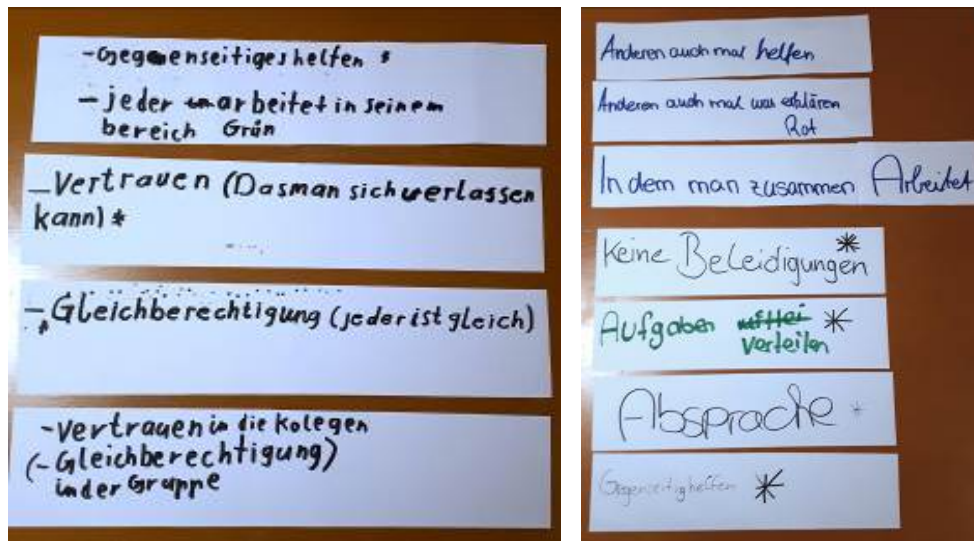 -Gegenseitiges helfen *
- jeder arbeitet in seinem
bereich Grün
- Vertrauen (Dasman sich verlassen
kann) *
- Gleichberechtigung (jeder ist gleich)
*
- Vertrauen in die Kolegen
(- Gleichberechtigung)
in der Gruppe
Anderen auch mal helfen
Anderen auch mal was erklären
Rot
In dem man zusammen Arbeitet
Keine Beleidigungen *
Aufgaben *
verteilen
Absprache *
Gegenseitig helfen *